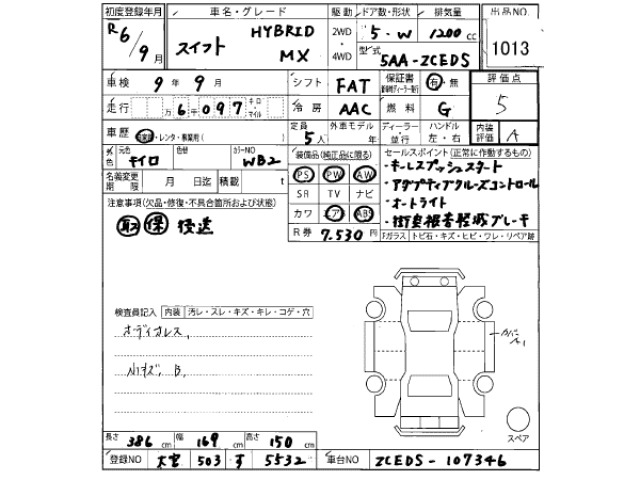 初度登録年月 車名・グレード 駆動 ドア数・形状 排気量 出品NO.
R6/9月 スイフト HYBRID MX 2WD・4WD 5・W 1200cc 1013
型式 5AA-ZCEDS
車検 9年9月 シフト FAT 保証書 有・無 評価点 5
走行 6千097 キロ・マイル 冷房 AAC 燃料 G
車歴 自家用・レンタ・事業用( ) 定員 5人 外車モデル 年 ディーラー・並行 ハンドル 左・右 内装評価 A
色 元色 キイロ 色替 カラーNO WB2
装備品(純正品に限る) セールスポイント(正常に作動するもの)
名義変更期限 月 日迄 積載 t
PS PW AW
SR TV ナビ
カワ エアB ABS
R券 7.530円
・キーレスプッシュスタート
・アダプティブクルーズコントロール
・オートライト
・衝突被害軽減ブレーキ
注意事項(欠品・修復・不具合箇所および状態)
取 保 後送
Fガラス トビ石・キズ・ヒビ・ワレ・リペア跡
検査員記入 内装 汚レ・スレ・キズ・キレ・コゲ・穴
オーディオレス、
B、
スペア
長さ 386cm 幅 169cm 高さ 150cm
登録NO 大宮 503 す 5532 車台NO ZCEDS-107346